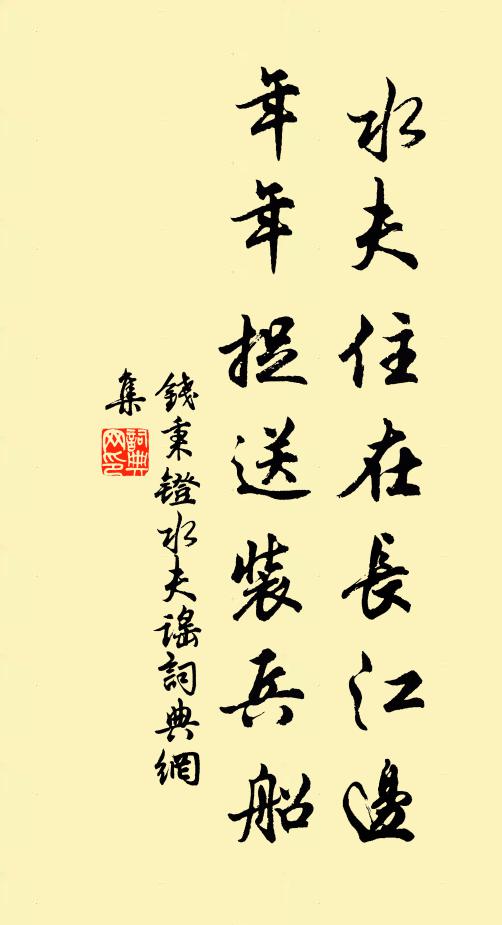 水夫住在長江邊
年年捉送裝兵船
錢秉鐙水夫謠詞典網
集
詞典
网印